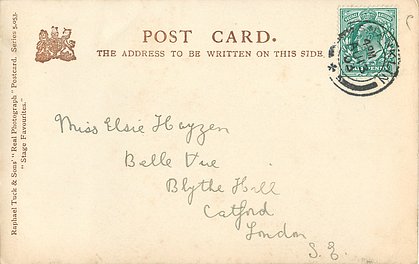 POST CARD.
THE ADDRESS TO BE WRITTEN ON THIS SIDE.
Raphael Tuck & Sons' "Real Photograph" Postcard. Series 5055.
"Stage Favourites."
Miss Elsie Hayzen
Belle Vue
Blythe Hill
Catford
London
S.E.